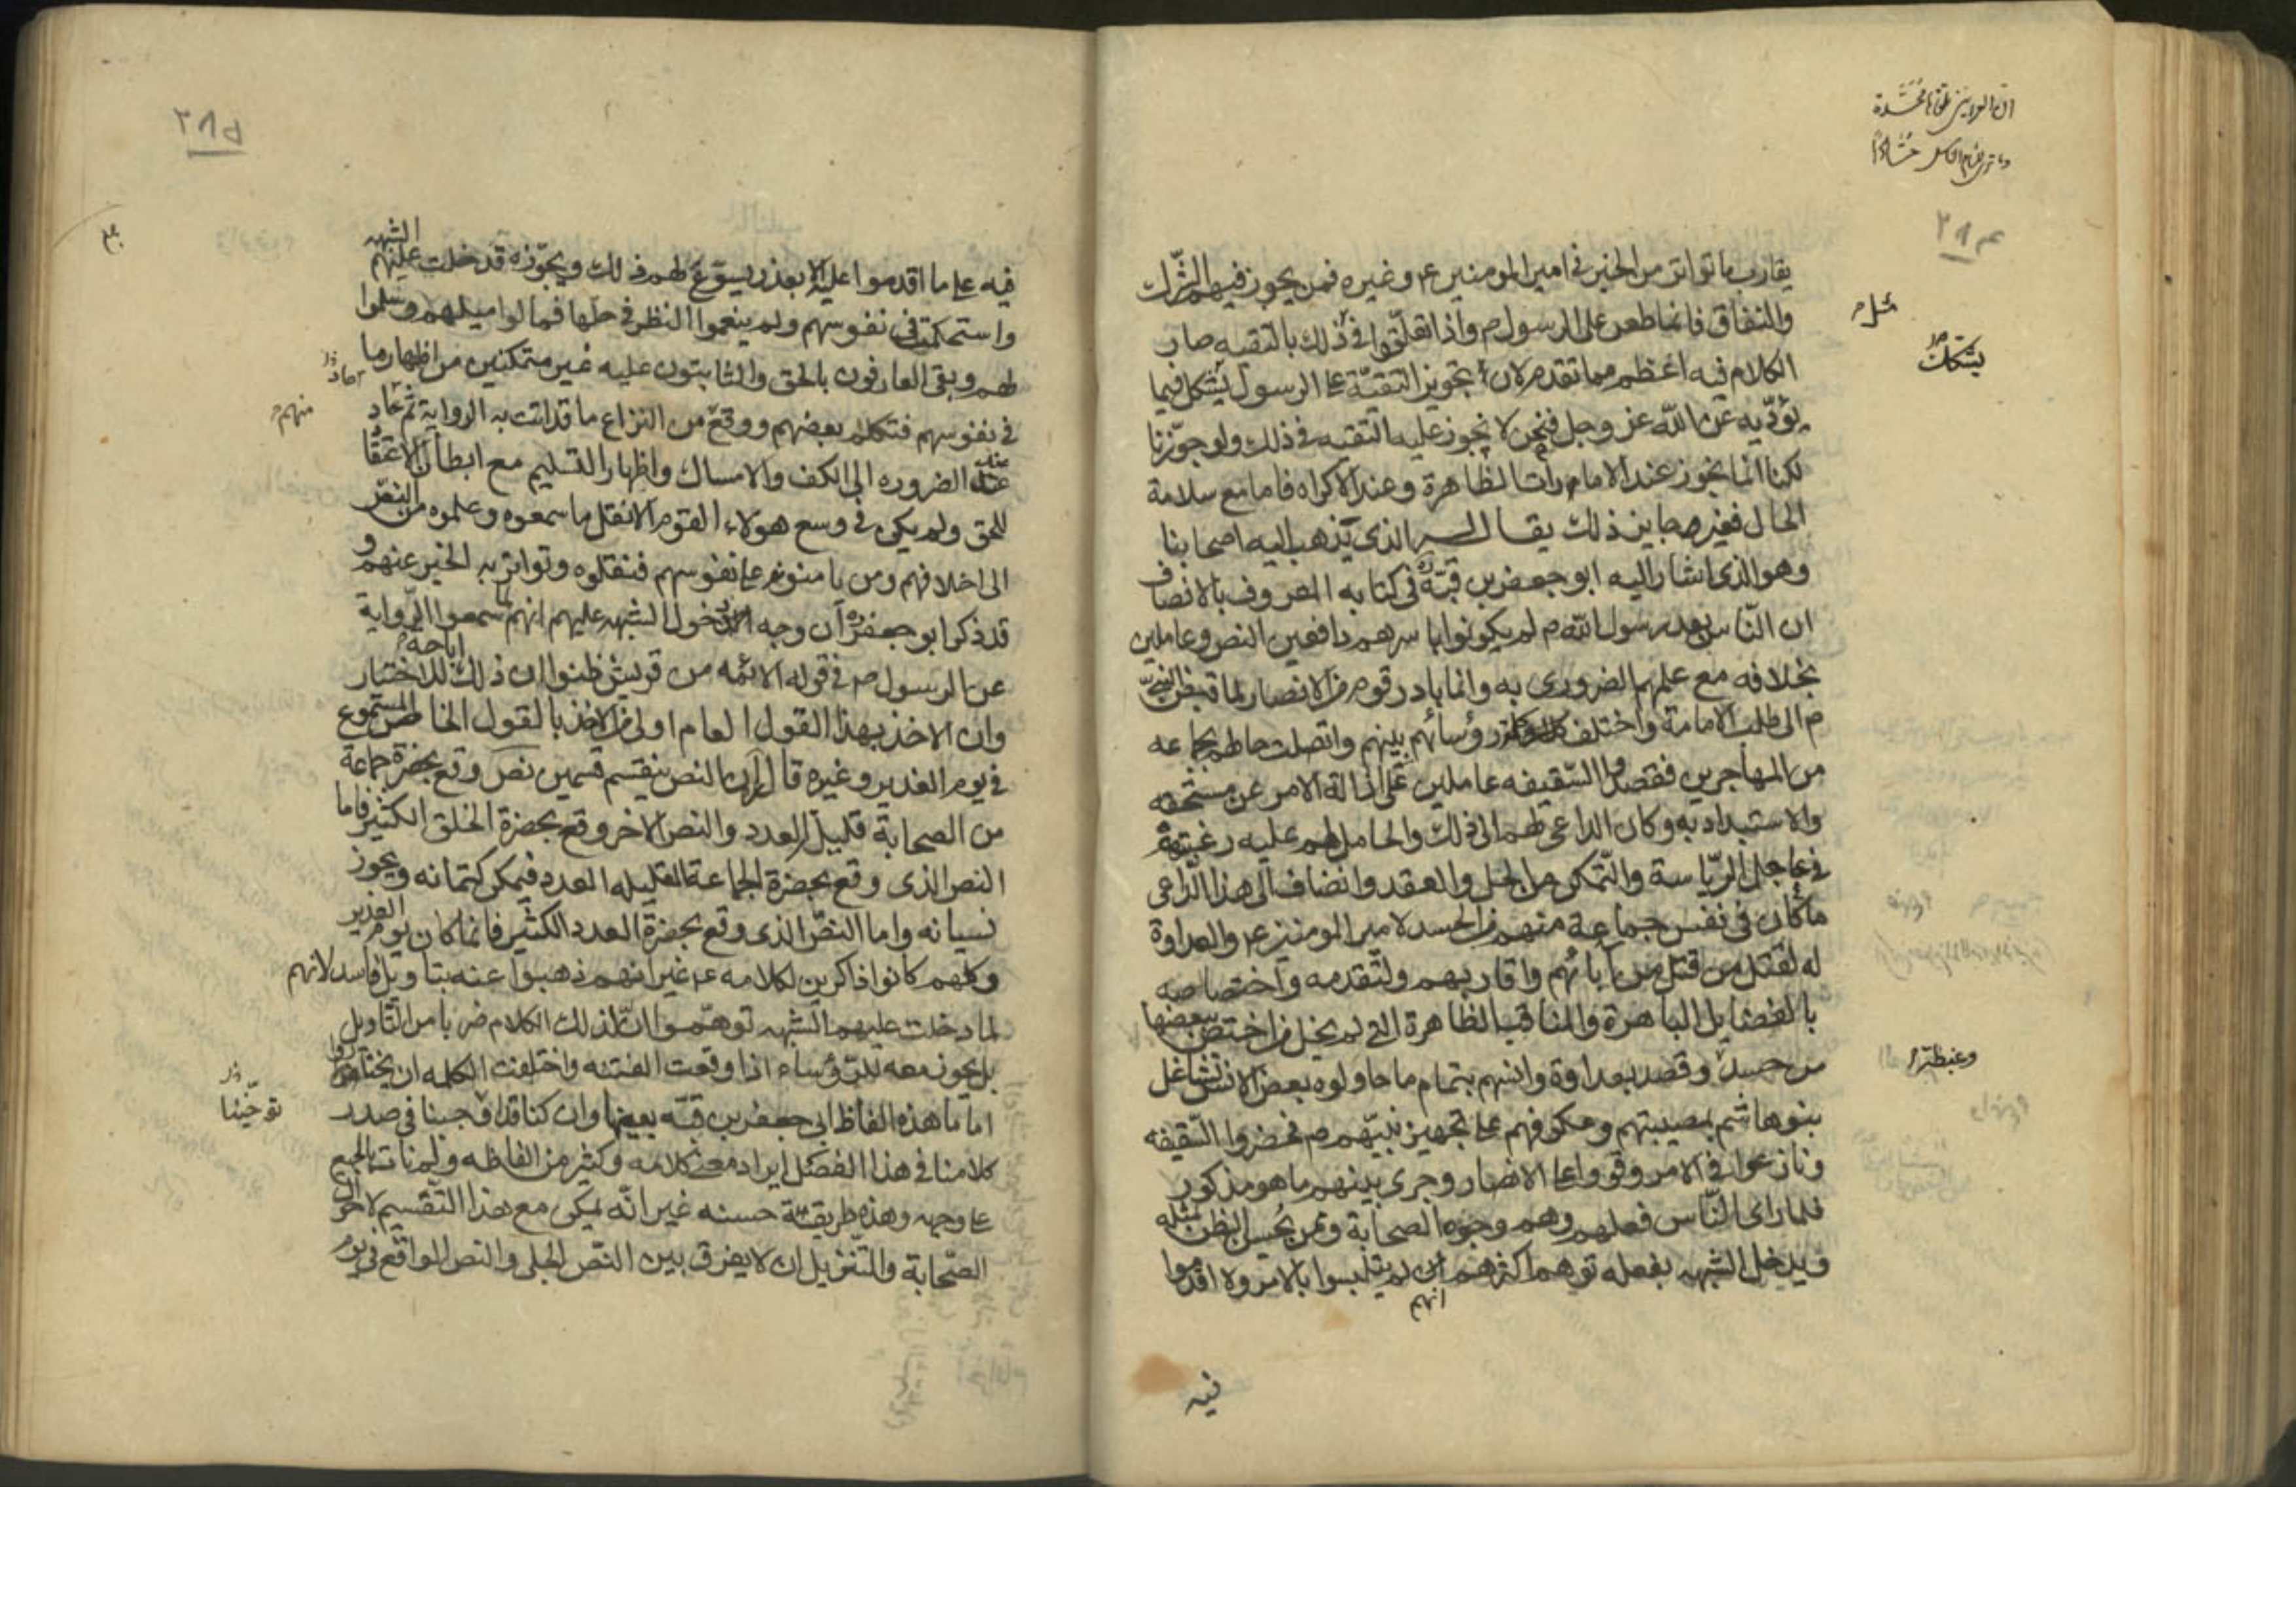 يقارب ما تواتر من الخبر في امير المومنين ع وغيره فمن يجوز فيهم الشرك
والنفاق فانما طعن على الرسول ص واذا تعلقوا في ذلك بالتقيه صار
الكلام فيه اعظم مما تقدم لان تجويز التقيّة على الرسول يشكل فيما
يؤدّيه عن الله عز وجل فنحن لا نجوز عليه التقيه في ذلك ولو جوّزنا
لكنا انما نجوز عند الامارات الظاهرة وعند الاكراه فاما مع سلامة
الحال فغير جايز ذلك يقال له الذى يذهب اليه اصحابنا
وهو الذى اشار اليه ابو جعفر بن قبة في كتابه المعروف بالانصاف
ان النّاس بعد رسول الله ص لم يكونوا باسرهم دافعين النص وعاملين
بخلافه مع علمهم الضرورى به وانما بادر قوم من الانصار لما قبض النبي
ص الى طلب الامامة واختلف رؤسائهم بينهم واتصلت حالهم بجماعه
من المهاجرين فقصدوا السّقيفه عاملين على ازالة الامر عن مستحقه
والاستبداد به وكان الداعى لهم الى ذلك والحامل لهم عليه رغبتهم
في عاجل الرّياسة والتّمكن من الحل والعقد وانضاف الى هذا الدّاعى
ما كان في نفس جماعة منهم من الحسد لامير المومنين ع والعداوة
له لقتل من قتل من آبائهم واقاربهم ولتقدمه واختصاصه
بالفضايل الباهرة والمناقب الظاهرة التي لم يخل من اختص ببعضها
من حسد وقصد بعداوة وانسهم بتمام ما حاولوه بعض الانس تشاغل
بنو هاشم بمصيبتهم وعكوفهم على تجهيز نبيّهم ص فحضروا السّقيفه
ونازعوا في الامر وقووا على الانصار وجرى بينهم ما هو مذكور
فلما راى النّاس فعلهم وهم وجوه الصحابة ومن يحسن الظن بمثله
ويدخل الشبهه بفعله توهم اكثرهم انهم لم يتلبسوا بالامر ولا اقدموا
فيه
مثل
يشكك
وغبطة
٢٨٤
٢٨٥
فيه على ما اقدموا عليه الا بعذر يسوّغ لهم ذلك ويجوّزه قد خلت عليهم الشبهه
واستحكمت في نفوسهم ولم ينعموا النظر في حلها فمالوا ميلهم وسلموا
لهم وبقى العارفون بالحق والثابتون عليه غير متمكنين من اظهار ما
في نفوسهم فتكلم بعضهم ووقع من النزاع ما قد اتت به الرواية ثم عاد
عند الضروره الى الكف والامساك واظهار التسليم مع ابطان الاعتقاد
للحق ولم يكن في وسع هولاء القوم الا نقل ما سمعوه وعلموه من النص
الى اخلافهم ومن يامنونه على نفوسهم فنقلوه وتواتر به الخبر عنهم و
قد ذكر ابو جعفر ره ان وجه دخول الشبهه عليهم انهم لما سمعوا الرّواية
عن الرسول ص في قوله الائمه من قريش ظنوا ان ذلك اباحة للاختيار
وان الاخذ بهذا القول العام اولى من الاخذ بالقول الخاص المسموع
في يوم الغدير وغيره قال ان النص ينقسم قسمين نص وقع بحضرة جماعة
من الصحابة قليل العدد والنص الاخر وقع بحضرة الخلق الكثير فاما
النص الذى وقع بحضرة الجماعة القليله العدد فيمكن كتمانه ويجوز
نسيانه واما النصّ الذى وقع بحضرة العدد الكثير فانما كان يوم الغدير
وكلهم كانوا ذاكرين لكلامه ع غير انهم ذهبوا عنه بتاويل فاسد لانهم
لما دخلت عليهم الشبهه توهّموا ان لذلك الكلام ضربا من التاويل
بل يجوز معه للرؤساء اذا وقعت الفتنه واختلفت الكلمه ان يختاروا
اماما هذه الفاظ ابي جعفر بن قبّه بعينها وان كنا قد اوجبنا في صدر
كلامنا في هذا الفصل ايراد معنى كلامه وكثير من الفاظه ولم نات بالجميع
على وجهه وهذه طريقة حسنه غير انّه يمكن مع هذا التّقسيم لاحوال
الصّحابة والتّنزيل ان لا يفرق بين النّص الجلى والنص الواقع في يوم
منهم
توخينا